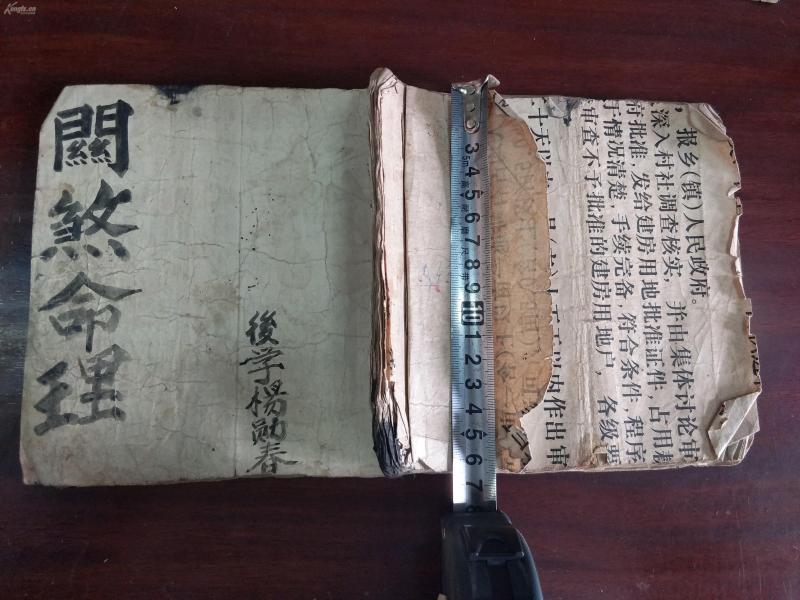 Kongfz.cn
關煞命理
後学楊勛春
报乡(镇)人民政府。
深入村社调查核实,并由集体讨论审
府批准,发给建房用地批准证件,占用耕
于情况清楚,手续完备,符合条件,程序
审查不予批准的建房用地户,各级要
十天以内作出审
3 4 5 6 7 8 9 10 1 2 3 4 5 6 7
5m